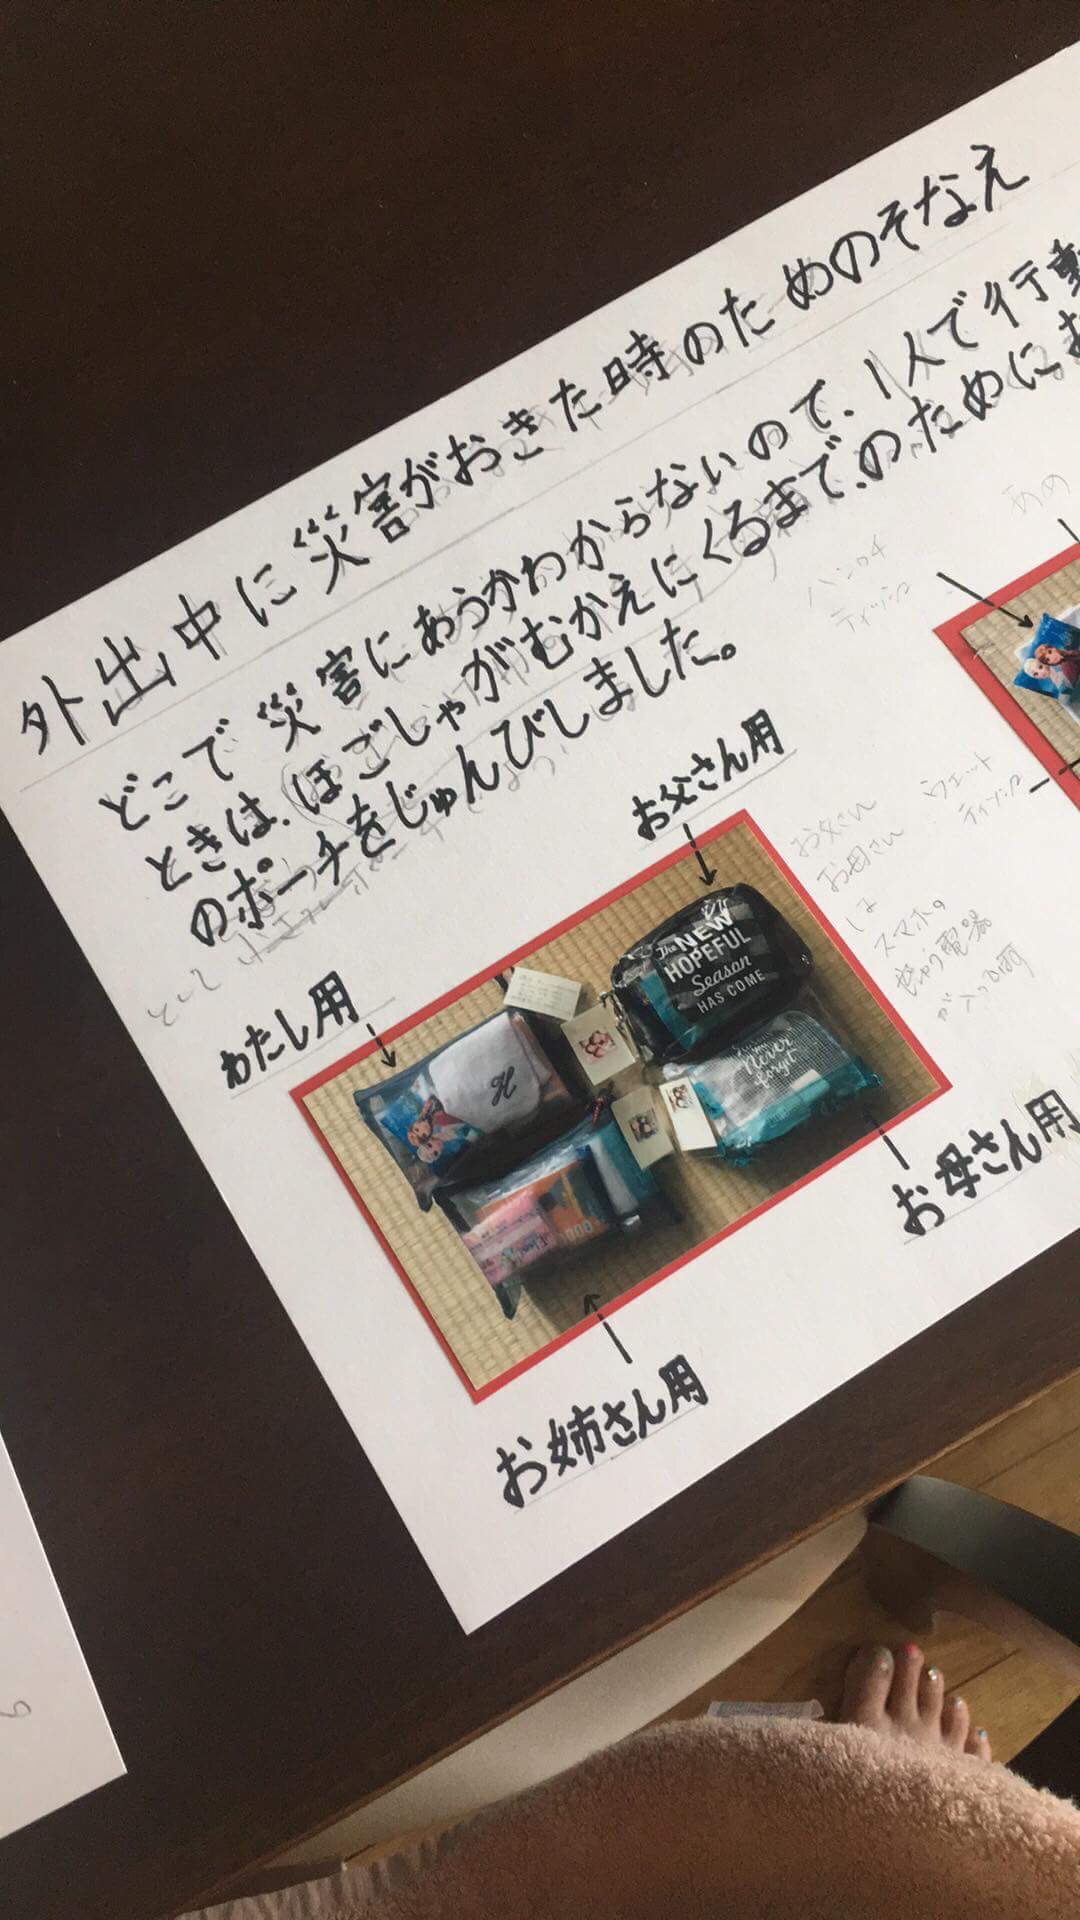 外出中に災害がおきた時のためのそなえ
どこで災害にあうかわからないので、1人で行動
ときは、ほごしゃがむかえにくるまでのためにお
のポーチをじゅんびしました。
わたし用
お父さん用
お母さん用
お姉さん用
The NEW
HOPEFUL
Season
HAS COME
Never
forget
H
あめ
ハンカチ
ティッシュ
ウェット
ティッシュ
お父さん
お母さん
は
スマホの
じゅう電器
が入っ
として